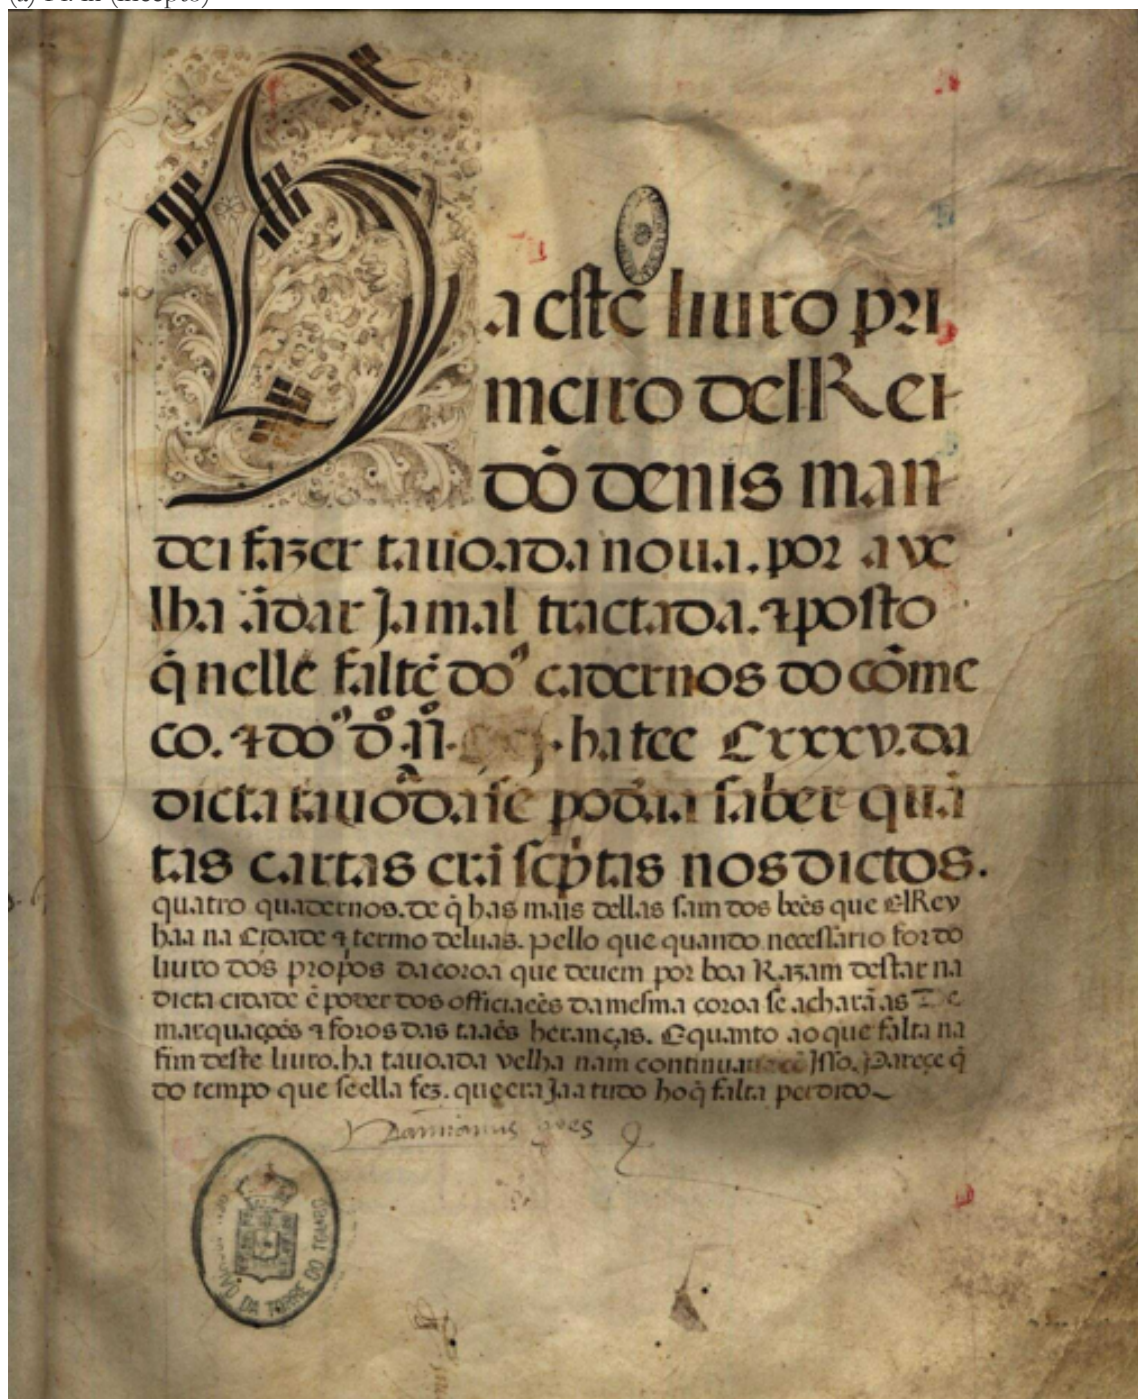 Ha este liuro pri
meiro delRei
dõ denis man
dei fazer tauoada noua. por a ve
lha ãdar Ja mal tractada. ⁊ posto
q̃ nelle faltẽ doˢ cadernos do cõme
co. ⁊ doˢ dº .ha tee Cxxxv. da
dicta tauoᵃda se podia saber quã
tas cartas erã scp̃tas nos dictos.
quatro quadernos. de q̃ has mais dellas sam dos beẽs que elRey
haa na Cidade ⁊ termo deluas. pello que quando necessario for do
liuro dos propᵒos dacoroa que deuem por boa Razam destar na
dicta cidade ẽ poder dos officiaeẽs da mesma coroa se acharã as De
marquaçoẽs ⁊ foros das taaẽs heranças. E quanto ao que falta na
fim deste liuro. ha tauoada velha nam Isso. Pareçe q̃
do tempo que se ella fez. que era Jaa tudo ho q̃ falta perdido
Damianus goes
DA TORRE DO TOMBO